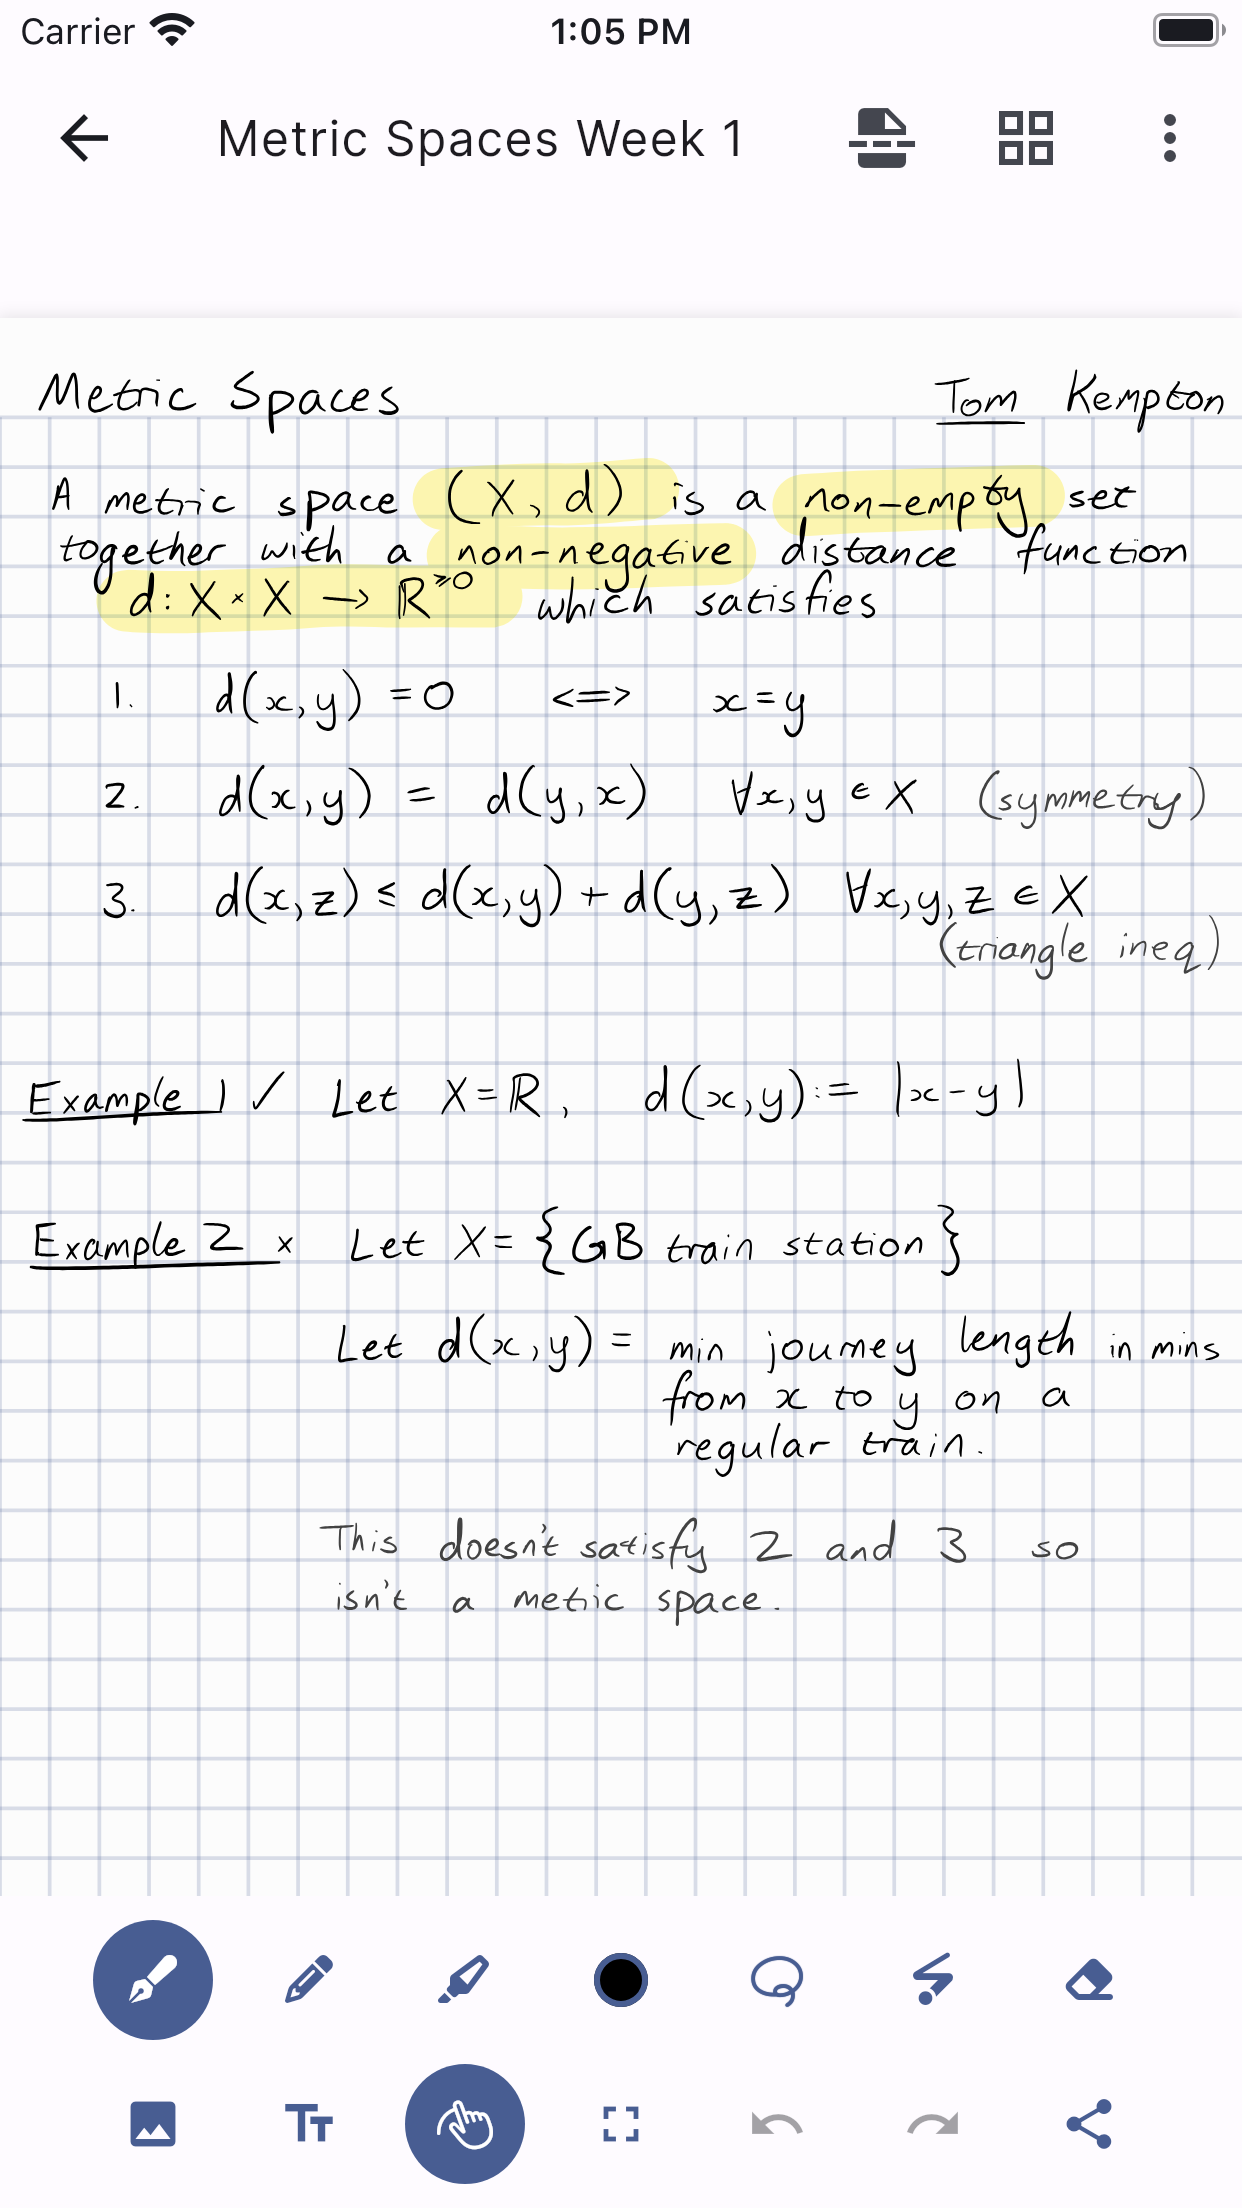 Carrier 1:05 PM
Metric Spaces Week 1
Metric Spaces Tom Kempton
A metric space (X, d) is a non-empty set
together with a non-negative distance function
d: X × X → ℝ^≥0 which satisfies
1. d(x,y) = 0 <=> x = y
2. d(x,y) = d(y,x) ∀x,y ∈ X (symmetry)
3. d(x,z) ≤ d(x,y) + d(y,z) ∀x,y,z ∈ X
(triangle ineq)
Example 1 ✓ Let X = ℝ, d(x,y) := |x-y|
Example 2 × Let X = {GB train station}
Let d(x,y) = min journey length in mins
from x to y on a
regular train.
This doesn't satisfy 2 and 3 so
isn't a metric space.
TT